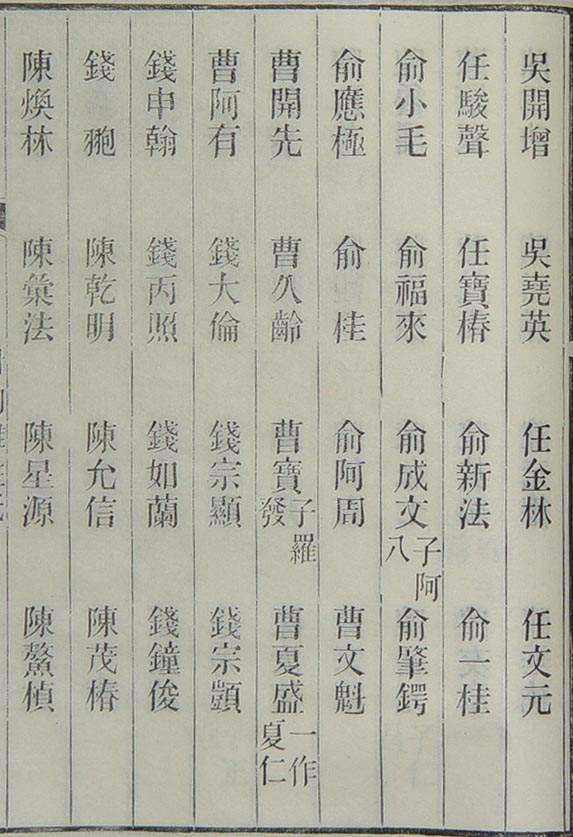 吳開增 吳堯英 任金林 任文元
任駿聲 任寶椿 俞新法 俞一桂
俞小毛 俞福來 俞成文子阿八 俞肇鍔
俞應極 俞桂 俞阿周 曹文魁
曹開先 曹久齡 曹寶子羅發 曹夏盛一作夏仁
曹阿有 錢大倫 錢宗顯 錢宗顗
錢申翰 錢丙照 錢如蘭 錢鐘俊
錢 陳乾明 陳允信 陳茂椿
陳煥林 陳彙法 陳星源 陳鰲楨